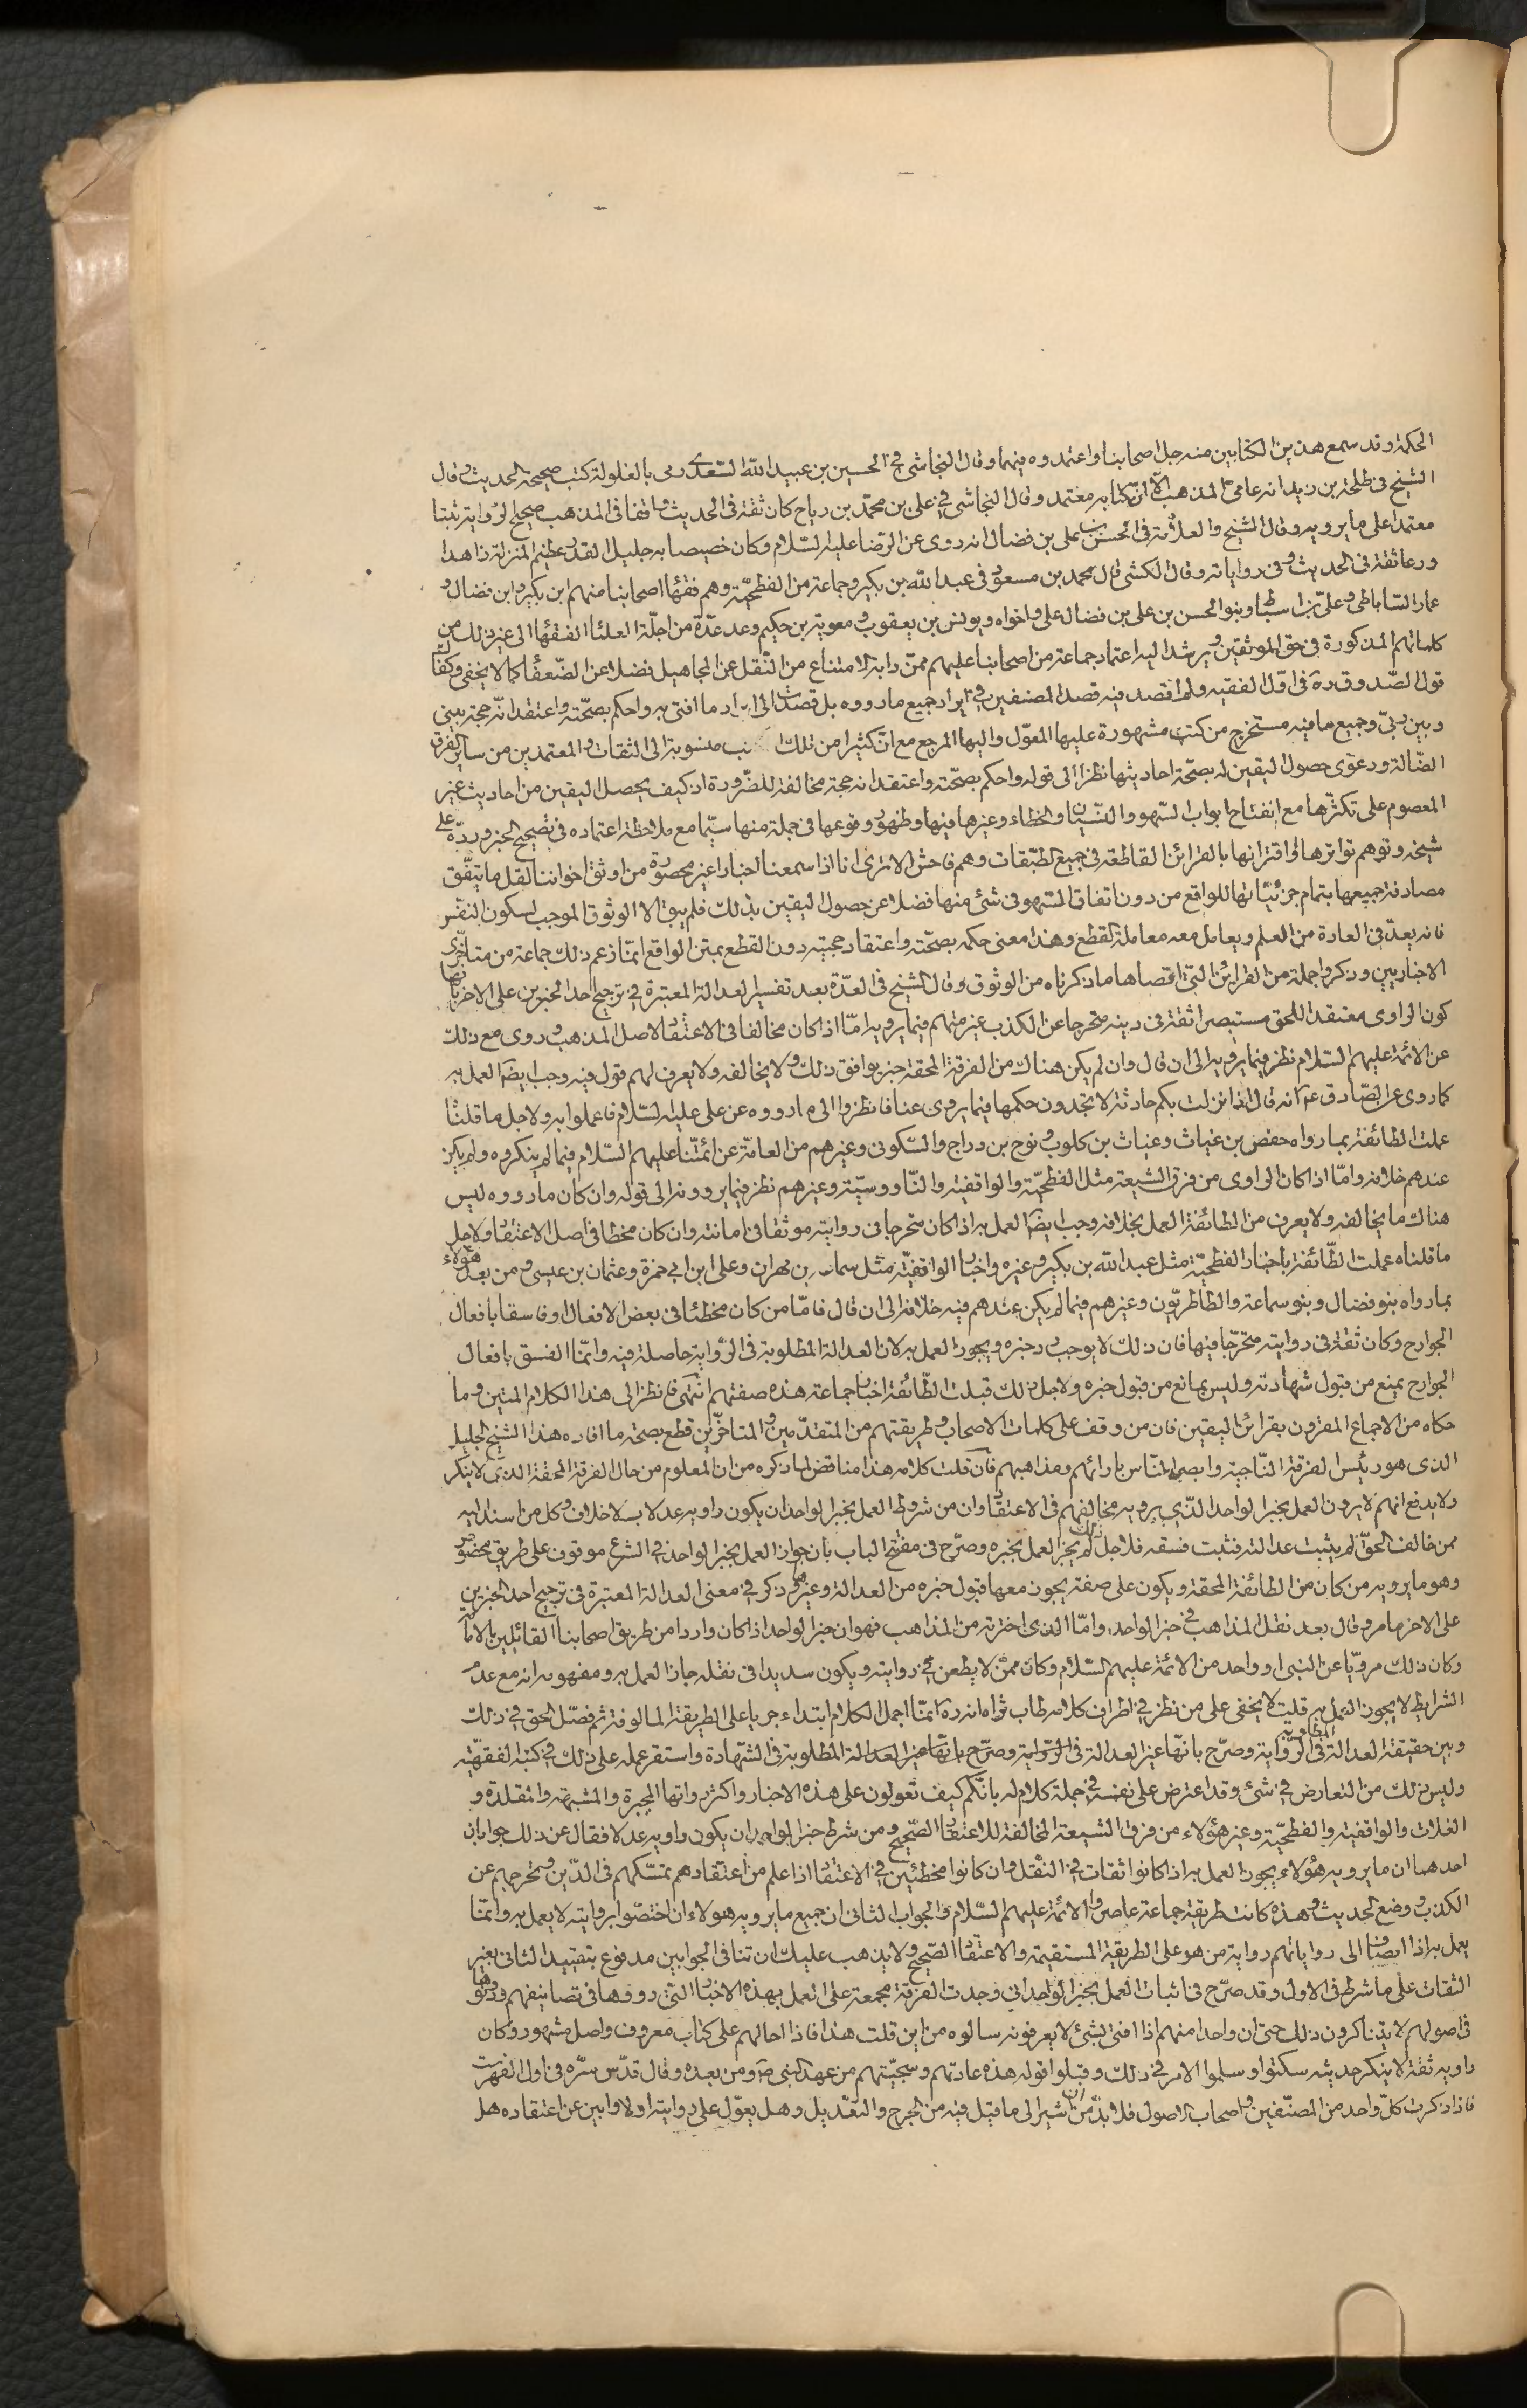 الحكمة وقد سمع هذين الكتابين منه جل اصحابنا واعتمدوه فيهما وقال النجاشى في الحسين بن عبيد الله السّعدى رمى بالغلو له كتب صحيحة الحديث وقال
الشيخ فى طلحة بن زيد انه عامى المذهب الا ان كتابه معتمد وقال النجاشى في على بن محمّد بن رياح كان ثقة فى الحديث واقفا فى المذهب صحيح الرواية ثبتا
معتمدا على ما يرويه وقال الشيخ والعلامة فى الحسن بن على بن فضال انه روى عن الرّضا عليه السّلام وكان خصيصا به جليل القدر عظيم المنزلة زاهدا
ورعا ثقة فى الحديث وفى رواياته وقال الكشى قال محمد بن مسعود فى عبد الله بن بكير وجماعة من الفطحيّة وهم فقهاء اصحابنا منهم ابن بكير وابن فضال و
عمار السّاباطى وعلى بن اسباط وبنو الحسن بن على بن فضال على واخواه ويونس بن يعقوب ومعوية بن حكيم وعد عدّة من اجلّة العلماء الفقهاء الى غير ذلك من
كلماتهم المذكورة فى حق الموثقين ويرشد اليه اعتماد جماعة من اصحابنا عليهم ممن دابه الامتناع من النّقل عن المجاهيل فضلا عن الضّعفاء كما لا يخفى وكفاك
قول الصّدوق ره فى اوّل الفقيه ولم اقصد فيه قصد المصنفين فى ايراد جميع ما رووه بل قصدت الى ايراد ما افتى به واحكم بصحّته واعتقد انّه حجة بينى
وبين ربىّ وجميع ما فيه مستخرج من كتب مشهورة عليها المعوّل واليها المرجع مع انّ كثيرا من تلك منسوبة الى الثقات والمعتمدين من ساير الفرق
الضّالة ودعوى حصول اليقين له بصحّة احاديثها نظرا الى قوله واحكم بصحّته واعتقد انه حجة مخالفة للضّرورة اذ كيف يحصل اليقين من احاديث غير
المعصوم على تكثرّها مع انفتاح ابواب السّهو والنّسيان والخطاء وغيرها فيها وظهور وقوعها فى جملة منها سيّما مع ملاحظة اعتماده فى تصحيح الخبر وردّه على
شيخه وتوهم تواترها او اقترانها بالقرائن القاطعة فى جميع الطبّقات وهم فاحش الا ترى انا اذا سمعنا اخبارا غير محصورة من اوثق اخواننا لقل ما يتفّق
مصادفة جميعها بتمام جزئيّاتها للواقع من دون اتفاق السّهو فى شئ منها فضلا عن حصول اليقين بذلك فلم يبق الا الوثوق الموجب لسكون النفس
فانه يعدّ فى العادة من العلم ويعامل معه معاملة القطع وهذا معنى حكمه بصحّته واعتقاد حجيته دون القطع بمتن الواقع انمّا زعم ذلك جماعة من متاخّرى
الاخباريين وذكروا جملة من القرائن التىّ اقصاها ما ذكرناه من الوثوق وقال الشيخ فى العدّة بعد تفسير العدالة المعتبرة في ترجيح احد الخبرين على الاخر بانها
كون الراوى معتقدا للحق مستبصرا ثقة فى دينه متحرجا عن الكذب غير متهم فيما يرويه امّا اذا كان مخالفا فى الاعتقاد لاصل المذهب وروى مع ذلك
عن الائمة عليهم السّلام نظر فيما يرويه الى ان قال وان لم يكن هناك من الفرقة المحقة خبر يوافق ذلك ولا يخالفه ولا يعرف لهم قول فيه وجب ايضا العمل به
كما روى عن الصّادق ع انه قال اذا نزلت بكم حادثة لا تجدون حكمها فيما يروى عنا فانظروا الى ما رووه عن على عليه السّلام فاعملوا به ولاجل ما قلناه
عملت الطائفة بما رواه حفص بن غياث وغياث بن كلوب ونوح بن دراج والسّكونى وغيرهم من العامّة عن ائمتّنا عليهم السّلام فيما لم ينكروه ولم يكن
عندهم خلافه وامّا اذا كان الراوى من فرق الشيعة مثل الفطحيّة والواقفية والنّاووسيّة وغيرهم نظر فيما يروونه الى قوله وان كان ما رووه ليس
هناك ما يخالفه ولا يعرف من الطائفة العمل بخلافه وجب ايضا العمل به اذا كان متحرجا فى روايته موثقا فى امانته وان كان مخطا فى اصل الاعتقاد ولاجل
ما قلناه عملت الطّائفة باخبار الفطحيّة مثل عبد الله بن بكير وغيره واخبار الواقفيّة مثل سماعة بن مهران وعلى ابن ابى حمزة وعثمان بن عيسى ومن بعد هؤلاء
بما رواه بنو فضال وبنو سماعة والطاطريّون وغيرهم فيما لم يكن عندهم فيه خلافه الى ان قال فامّا من كان مخطئا فى بعض الافعال او فاسقا بافعال
الجوارح وكان ثقة فى روايته متحرّجا فيها فان ذلك لا يوجب رد خبره ويجوز العمل به لان العدالة المطلوبة فى الرّواية حاصلة فيه وانمّا الفسق بافعال
الجوارح يمنع من قبول شهادته وليس بمانع من قبول خبره ولاجل ذلك قبلت الطّائفة اخبار جماعة هذه صفتهم انتهى فانظر الى هذا الكلام المتين وما
حكاه من الاجماع المقرون بقرائن اليقين فان من وقف على كلمات الاصحاب وطريقتهم من المتقدّمين والمتاخّرين قطع بصحة ما افاده هذا الشيخ الجليل
الذى هو رئيس الفرقة النّاجية وابصر النّاس بارائهم ومذاهبهم فان قلت كلامه هذا مناقض لما ذكره من ان المعلوم من حال الفرقة المحقة الذى لا ينكر
ولا يدفع انهم لا يرون العمل بخبر الواحد الذّى يرويه مخالفهم فى الاعتقاد وان من شروط العمل بخبر الواحد ان يكون راويه عدلا بلا خلاف وكل من اسند اليه
ممن خالف الحقّ لم يثبت عدالته فتثبت فسقه فلاجل ذلك لم يجز العمل بخبره وصرّح فى مفتتح الباب بان جواز العمل بخبر الواحد فى الشرع موقوف على طريق مخصوص
وهو ما يرويه من كان من الطائفة المحقة ويكون على صفة يجوز معها قبول خبره من العدالة وغيرها وذكر في معنى العدالة المعتبرة فى ترجيح احد الخبرين
على الاخر ما مر وقال بعد نقل المذاهب في خبر الواحد وامّا الذى اخترته من المذاهب فهو ان خبر الواحد اذا كان واردا من طريق اصحابنا القائلين بالامامة
وكان ذلك مرويّا عن النبى او واحد من الائمة عليهم السّلام وكان ممّن لا يطعن في روايته ويكون سديدا فى نقله جاز العمل به ومفهومه انه مع عدم
الشرايط لا يجوز العمل به قلت لا يخفى على من نظر فى اطراف كلامه طاب ثراه انه ره انمّا اجمل الكلام ابتداء جريا على الطريقة المالوفة ثم فصّل الحق في ذلك
وبين حقيقة العدالة فى الرّواية وصرّح بانهّا غير العدالة فى الرّواية وصرّح بانهّا غير العدالة المطلوبة فى الشّهادة واستقر عمله على ذلك في كتبه الفقهيّة
وليس ذلك من التعارض في شئ وقد اعترض على نفسه في جملة كلام له بانّكم كيف تعولون على هذه الاخبار واكثر رواتها المجبرة والمشبهة والمقلدة و
الغلات والواقفية والفطحيّة وغير هؤلاء من فرق الشيعة المخالفة للاعتقاد الصّحيح ومن شرط خبر الواحد ان يكون راويه عدلا فقال عن ذلك جوابان
احدهما ان ما يرويه هؤلاء يجوز العمل به اذا كانوا ثقات في النّقل وان كانوا مخطئين في الاعتقاد اذا علم من اعتقادهم تمسّكهم فى الدّين وتحرجهم عن
الكذب ووضع الحديث وهذه كانت طريقة جماعة عاصروا الائمة عليهم السّلام والجواب الثانى ان جميع ما يرويه هولاء ان اختصّوا بروايته لا يعمل به وانمّا
يعمل به اذا انضاف الى رواياتهم رواية من هو على الطريقة المستقيمة والاعتقاد الصّحيح ولا يذهب عليك ان تنافى الجوابين مدفوع بتقييد الثانى بغير
الثقات على ما شرط فى الاول وقد صرّح فى اثبات العمل بخبر الواحد انى وجدت الفرقة مجمعة على العمل بهذه الاخبار التى رووها فى تصانيفهم ودونوها
فى اصولهم لا يتناكرون ذلك حتى ان واحدا منهم اذا افتى بشئ لا يعرفونه سالوه من اين قلت هذا فاذا احالهم على كتاب معروف واصل مشهور وكان
راويه ثقة لا ينكر حديثه سكتوا وسلموا الامر في ذلك وقبلوا قوله هذه عادتهم وسجيّتهم من عهد النبى ص ومن بعده وقال قدّس سرّه فى اول الفهرست
فاذا ذكرت كلّ واحد من المصنّفين واصحاب الاصول فلا بدّ من ان اشير الى ما قيل فيه من الجرح والتعّديل وهل يعوّل على روايته او لا وابين عن اعتقاده هل